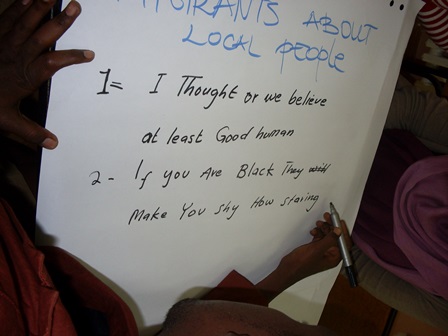 MIGRANTS ABOUT
LOCAL PEOPLE
1= I Thought or we believe
at least Good human
2- If you Are Black They
Make You shy How staring